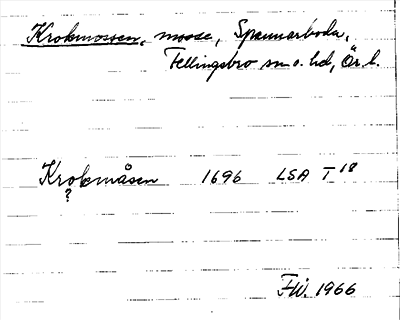 Krokmossen, mosse, Spannarboda,
Fellingsbro sn o. hd, Ör. l.
Krokmåsen 1696 LSA T 18
?
FW. 1966